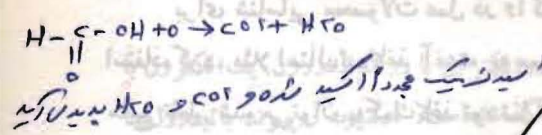 H-C-OH+O→CO2+H2O
||
O
اسید فرمیک مجدداً اکسید شده و CO2 و H2O پدید می‌آید